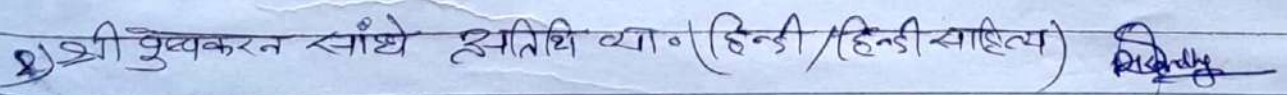 2) श्री पुष्पकरन सांधे अतिथि व्या० (हिन्दी / हिन्दी साहित्य)